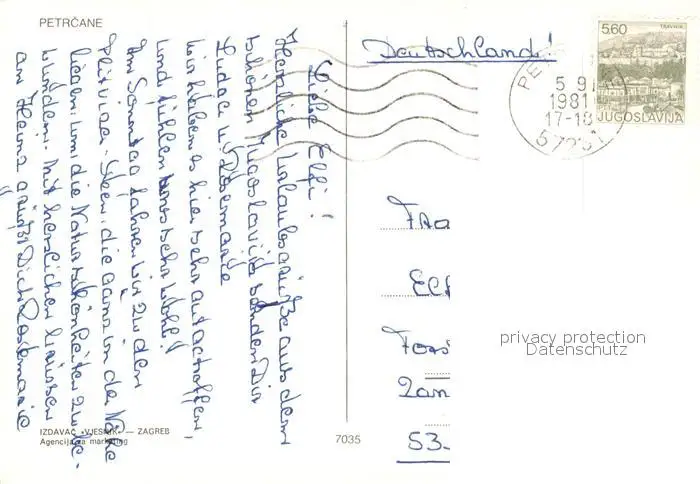 PETRČANE
Liebe Elfi!
Herzliche Urlaubsgrüße aus dem
schönen Jugoslavien senden Dir
u. Rosemarie
wir haben es hier sehr gut getroffen,
und fühlen uns sehr wohl!
Am Sonntag fahren wir zu den
Plitvizer-Seen, die ganz in der Nähe
liegen, um die Naturschönheiten zu be-
wundern. Mit herzlichen Grüssen
an Heinz grüßt Dich Rosemarie
IZDAVAČ «VJESNIK» — ZAGREB
Agencija za marketing
7035
Deutschland!
5.60
TRAVNIK
JUGOSLAVIJA
PE
5 9
1981
17-18
Fra
Elf
Fors
2an
53-
privacy protection
Datenschutz